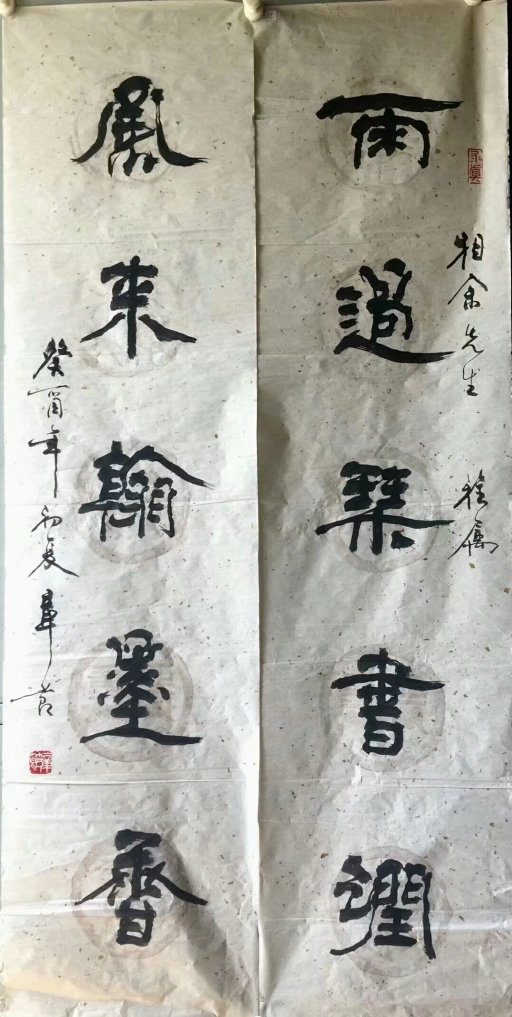 雨過琴書潤
相余先生 雅属
風來翰墨香
癸酉年初夏